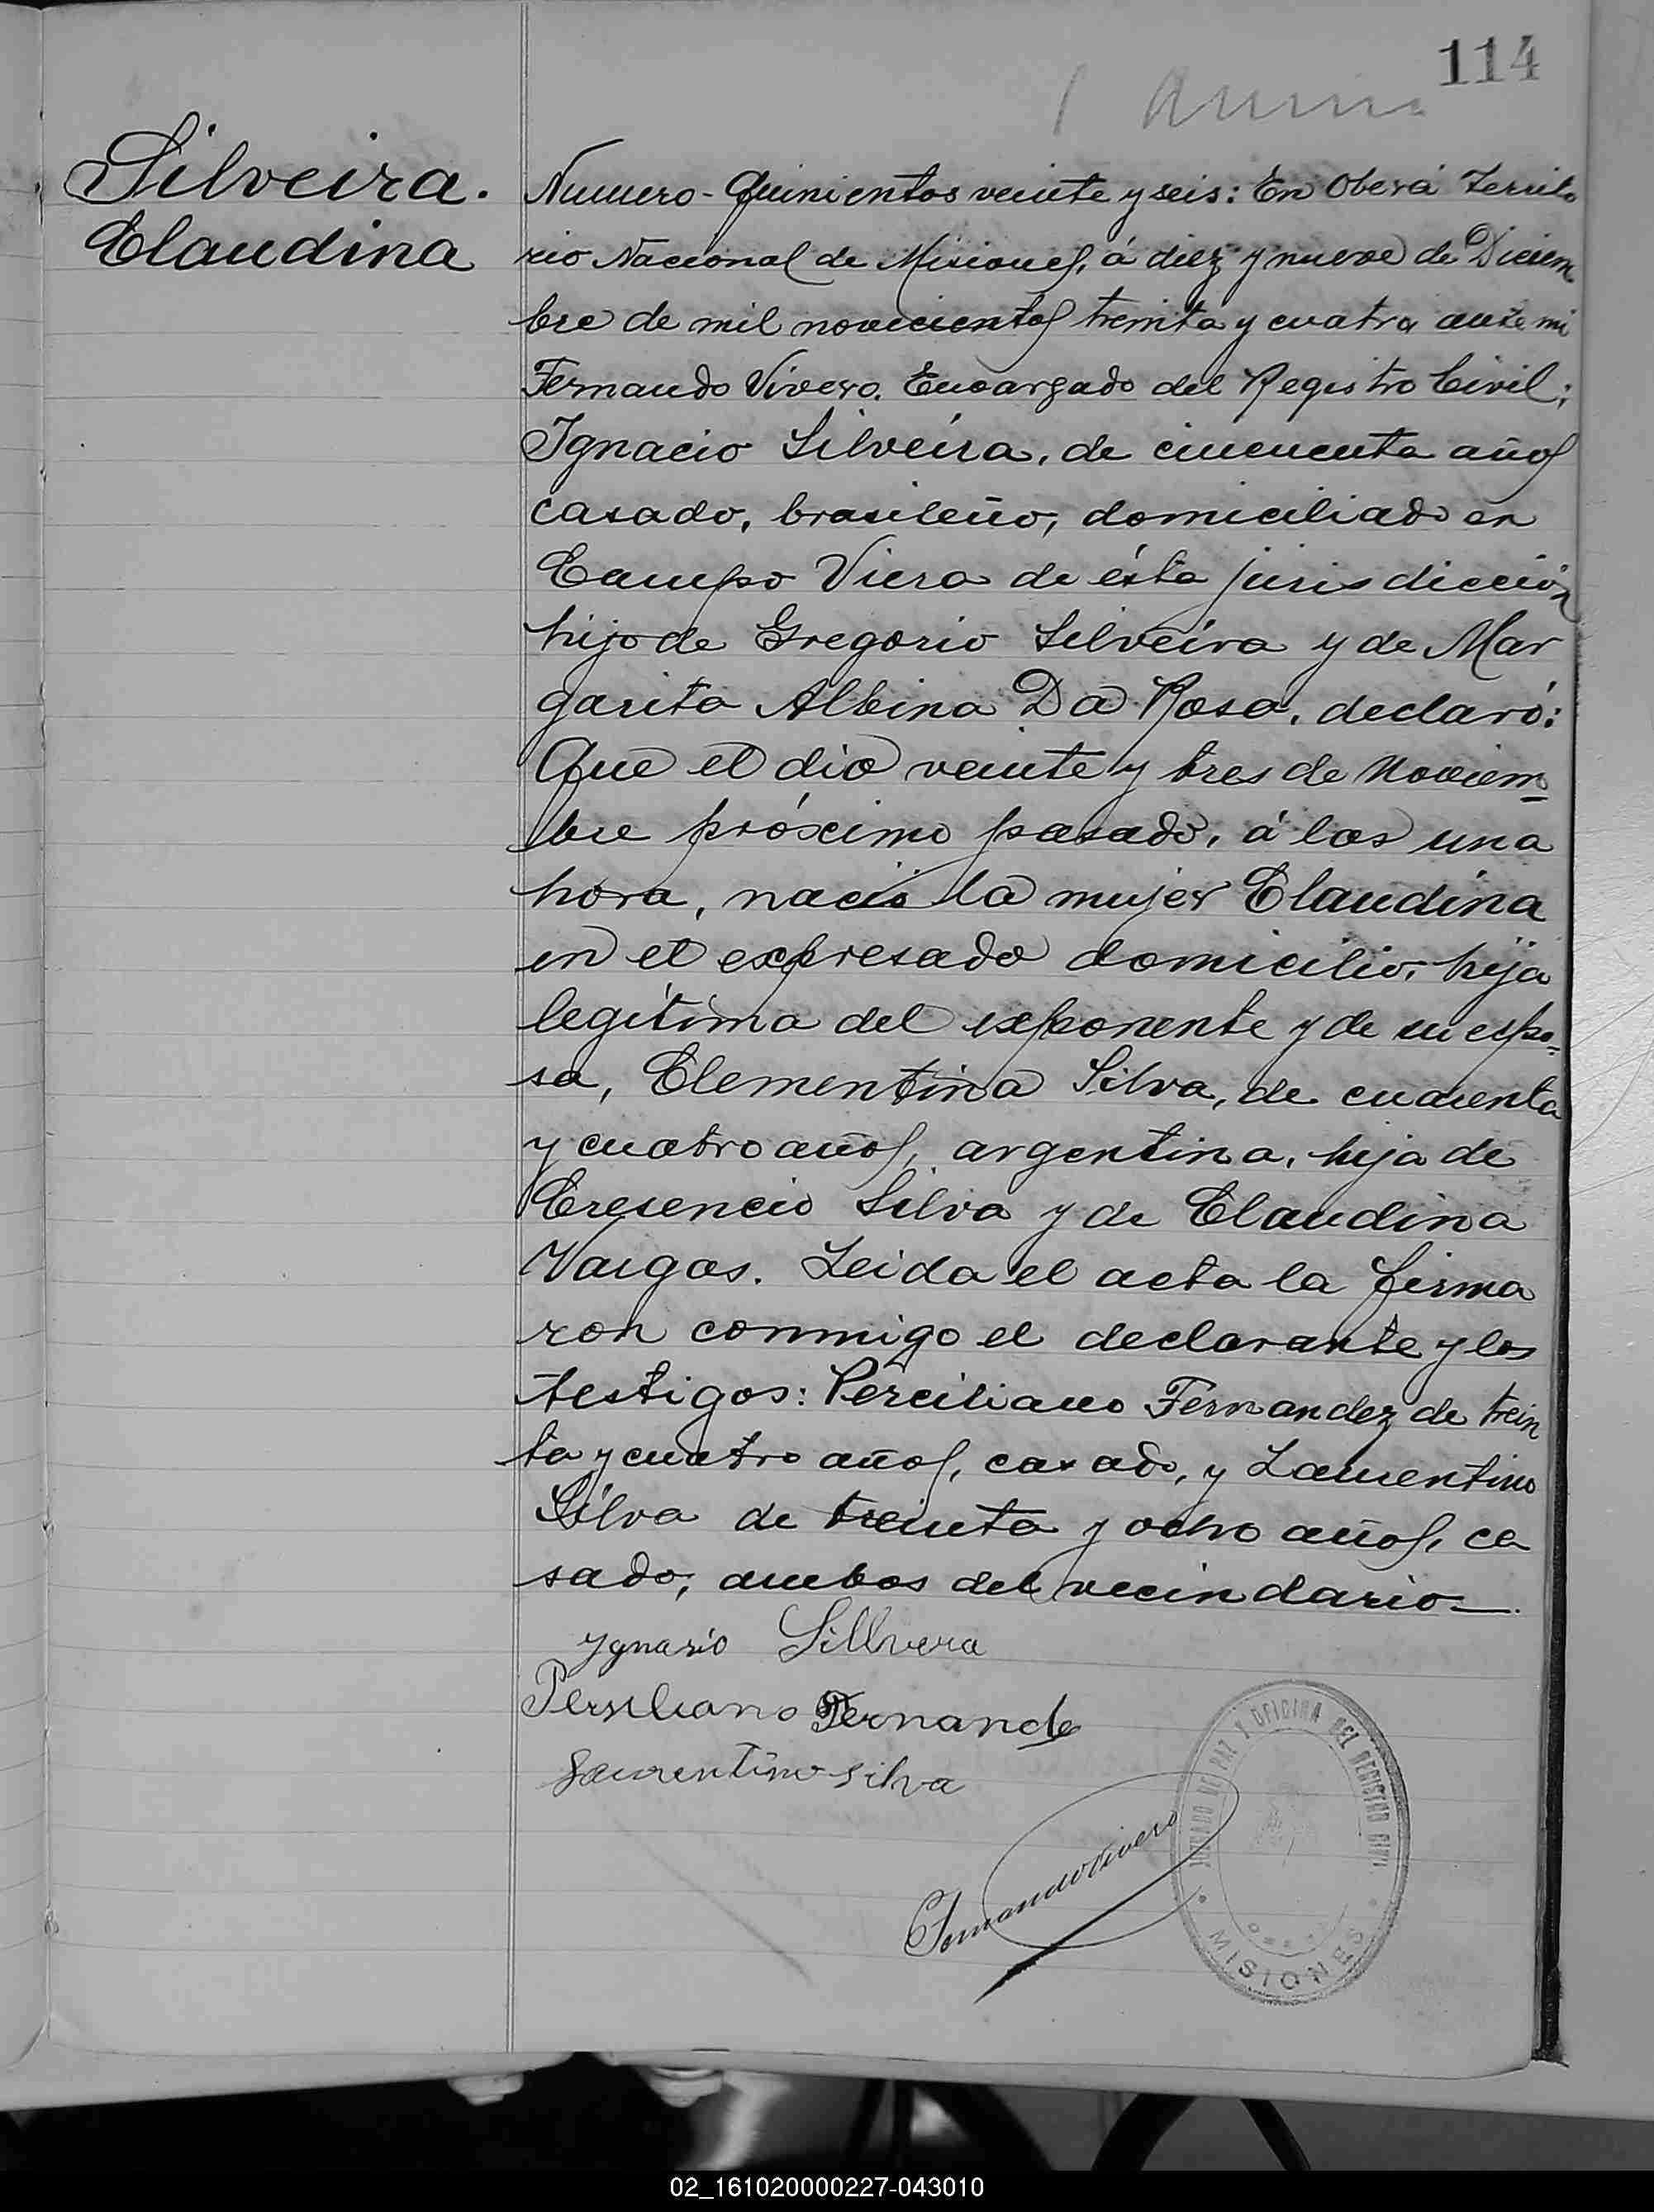 114
Silveira.
Claudina
Numero - Quinientos veinte y seis: En Oberá Territo
rio Nacional de Misiones, á diez y nueve de Diciem
bre de mil novecientos treinta y cuatro ante mi
Fernando Vivero. Encargado del Registro Civil;
Ignacio Silveira, de cincuenta años
casado, brasileño, domiciliado en
Campo Viera de ésta jurisdicción
hijo de Gregorio Silveira y de Mar
garita Albina Da Rosa, declaró:
Que el dia veinte y tres de Noviem
bre próximo pasado, á las una
hora, nació la mujer Claudina
en el expresado domicilio, hija
legítima del exponente y de su espo=
sa, Clementina Silva, de cuarenta
y cuatro años, argentina, hija de
Cresencio Silva y de Claudina
Vargas. Leida el acta la firma
ron conmigo el declarante y los
testigos: Perciliano Fernandez de trein
ta y cuatro años, casado, y Laurentino
Silva de treinta y ocho años, ca
sado, ambos del vecindario—.
Ygnasio Sillvera
Persiliano Fernande
Laurentino silva
Fernando Vivero
JUZGADO DE PAZ Y OFICINA DEL REGISTRO CIVIL
MISIONES
02_161020000227-043010